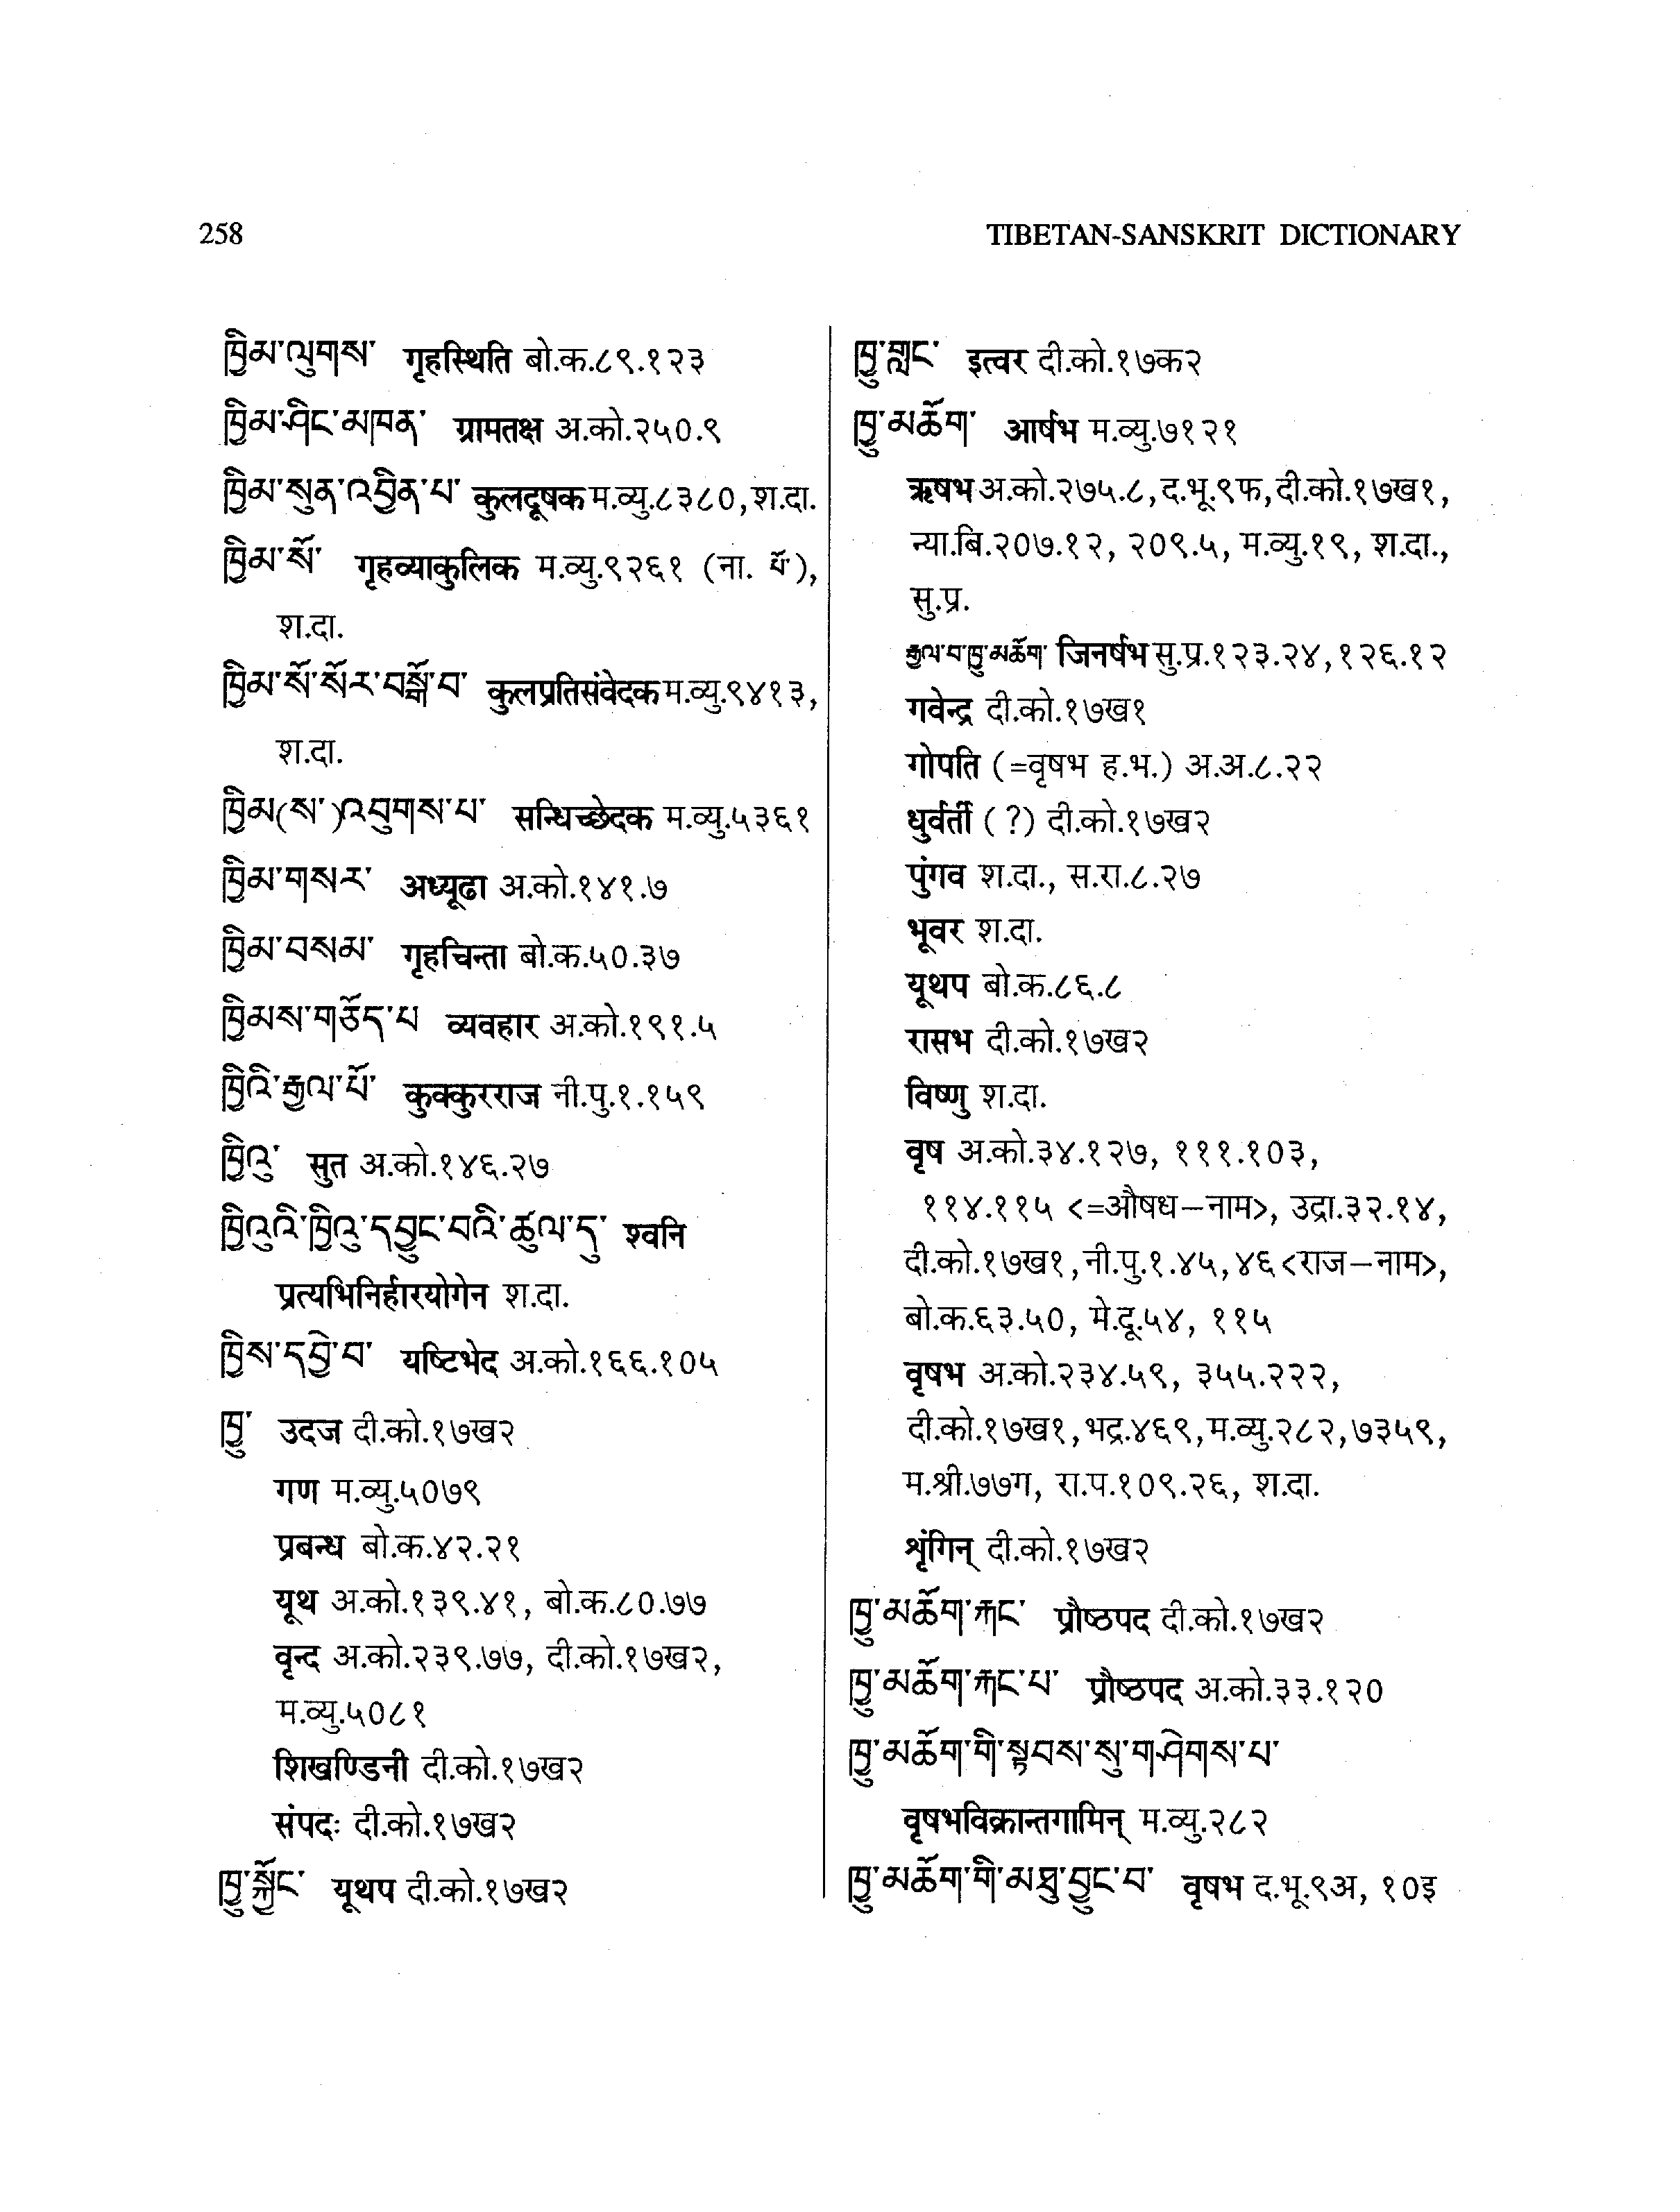 258
TIBETAN-SANSKRIT DICTIONARY
ཁྱིམ་ལུགས་ गृहस्थिति बो.क.८९.१२३
ཁྱིམ་ཤིང་མཁན་ ग्रामतक्ष अ.को.२५०.९
ཁྱིམ་སུན་འབྱིན་པ་ कुलदूषक म.व्यु.८३८०, श.दा.
ཁྱིམ་སོ་ गृहव्याकुलिक म.व्यु.९२६१ (ना. པོ་),
श.दा.
ཁྱིམ་སོ་སོར་བསྒོ་བ་ कुलप्रतिसंवेदक म.व्यु.९४१३,
श.दा.
ཁྱིམ(ས་)འབུགས་པ་ सन्धिच्छेदक म.व्यु.५३६१
ཁྱིམ་གསར་ अध्यूढा अ.को.१४१.७
ཁྱིམ་བསམ་ गृहचिन्ता बो.क.५०.३७
ཁྱིམས་གཅོད་པ व्यवहार अ.को.१९१.५
ཁྱིའི་རྒྱལ་པོ་ कुक्कुरराज नी.पु.१.१५९
ཁྱིའུ་ सुत अ.को.१४६.२७
ཁྱིའུའི་ཁྱིའུ་དབྱུང་བའི་ཚུལ་དུ་ श्वनि
प्रत्यभिनिर्हारयोगेन श.दा.
ཁྱིས་དབྱེ་བ་ यष्टिभेद अ.को.१६६.१०५
ཁྱུ་ उदज दी.को.१७ख२
गण म.व्यु.५०७९
प्रबन्ध बो.क.४२.२१
यूथ अ.को.१३९.४१, बो.क.८०.७७
वृन्द अ.को.२३९.७७, दी.को.१७ख२,
म.व्यु.५०८१
शिखण्डिनी दी.को.१७ख२
संपदः दी.को.१७ख२
ཁྱུ་སྐྱོང་ यूथप दी.को.१७ख२
ཁྱུ་གླང་ इत्वर दी.को.१७क२
ཁྱུ་མཆོག་ आर्षभ म.व्यु.७१२१
ऋषभ अ.को.२७५.८, द.भू.९फ, दी.को.१७ख१,
न्या.बि.२०७.१२, २०९.५, म.व्यु.१९, श.दा.,
सु.प्र.
རྒྱལ་བ་ཁྱུ་མཆོག་ जिनर्षभ सु.प्र.१२३.२४, १२६.१२
गवेन्द्र दी.को.१७ख१
गोपति (=वृषभ ह.भ.) अ.अ.८.२२
धुर्वर्ती (?) दी.को.१७ख२
पुंगव श.दा., स.रा.८.२७
भूवर श.दा.
यूथप बो.क.८६.८
रासभ दी.को.१७ख२
विष्णु श.दा.
वृष अ.को.३४.१२७, १११.१०३,
११४.११५ <=औषध-नाम>, उद्रा.३२.१४,
दी.को.१७ख१, नी.पु.१.४५, ४६ <राज-नाम>,
बो.क.६३.५०, मे.दू.५४, ११५
वृषभ अ.को.२३४.५९, ३५५.२२२,
दी.को.१७ख१, भद्र.४६९, म.व्यु.२८२, ७३५९,
म.श्री.७७ग, रा.प.१०९.२६, श.दा.
शृंगिन् दी.को.१७ख२
ཁྱུ་མཆོག་རྐང་ प्रौष्ठपद दी.को.१७ख२
ཁྱུ་མཆོག་རྐང་པ་ प्रौष्ठपद अ.को.३३.१२०
ཁྱུ་མཆོག་གི་སྟབས་སུ་གཤེགས་པ་
वृषभविक्रान्तगामिन् म.व्यु.२८२
ཁྱུ་མཆོག་གི་མཐུ་བྱུང་བ་ वृषभ द.भू.९अ, १०इ